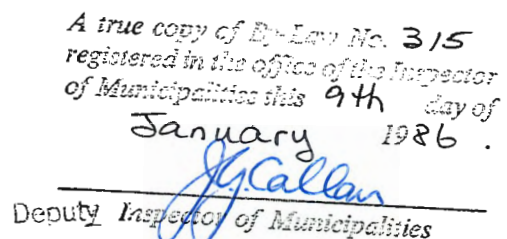 A true copy of By-Law No. 315
registered in the office of the Inspector
of Municipalities this 9th day of
January 1986.
J.G. Callan
Deputy Inspector of Municipalities